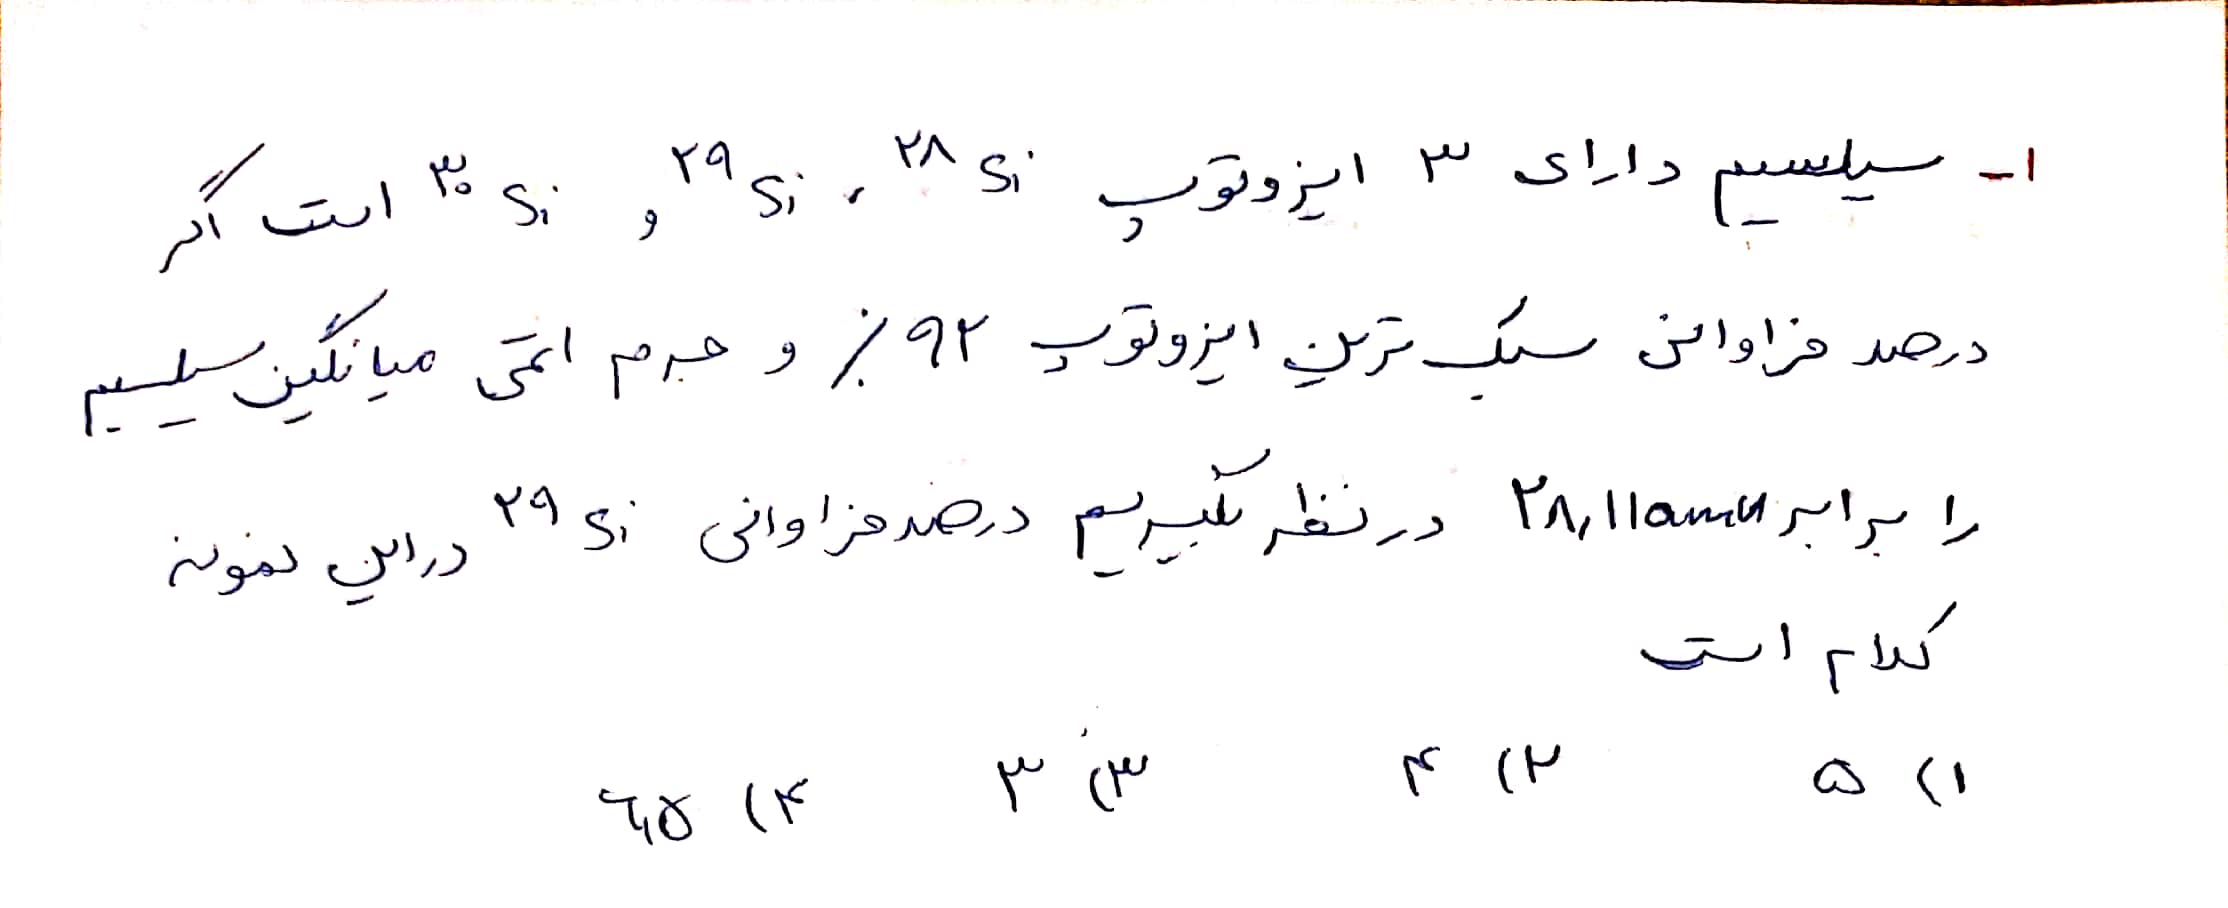 ۱- سیلسیم دارای ۳ ایزوتوپ ²⁸Si، ²⁹Si و ³⁰Si است اگر
درصد فراوانی سبک ترین ایزوتوپ ۹۲٪ و جرم اتمی میانگین سیلسیم
را برابر ۲۸٫۱۱amu در نظر بگیریم درصد فراوانی ²⁹Si در این نمونه
کدام است
۱) ۵ ۲) ۴ ۳) ۳ ۴) ۶٫۵